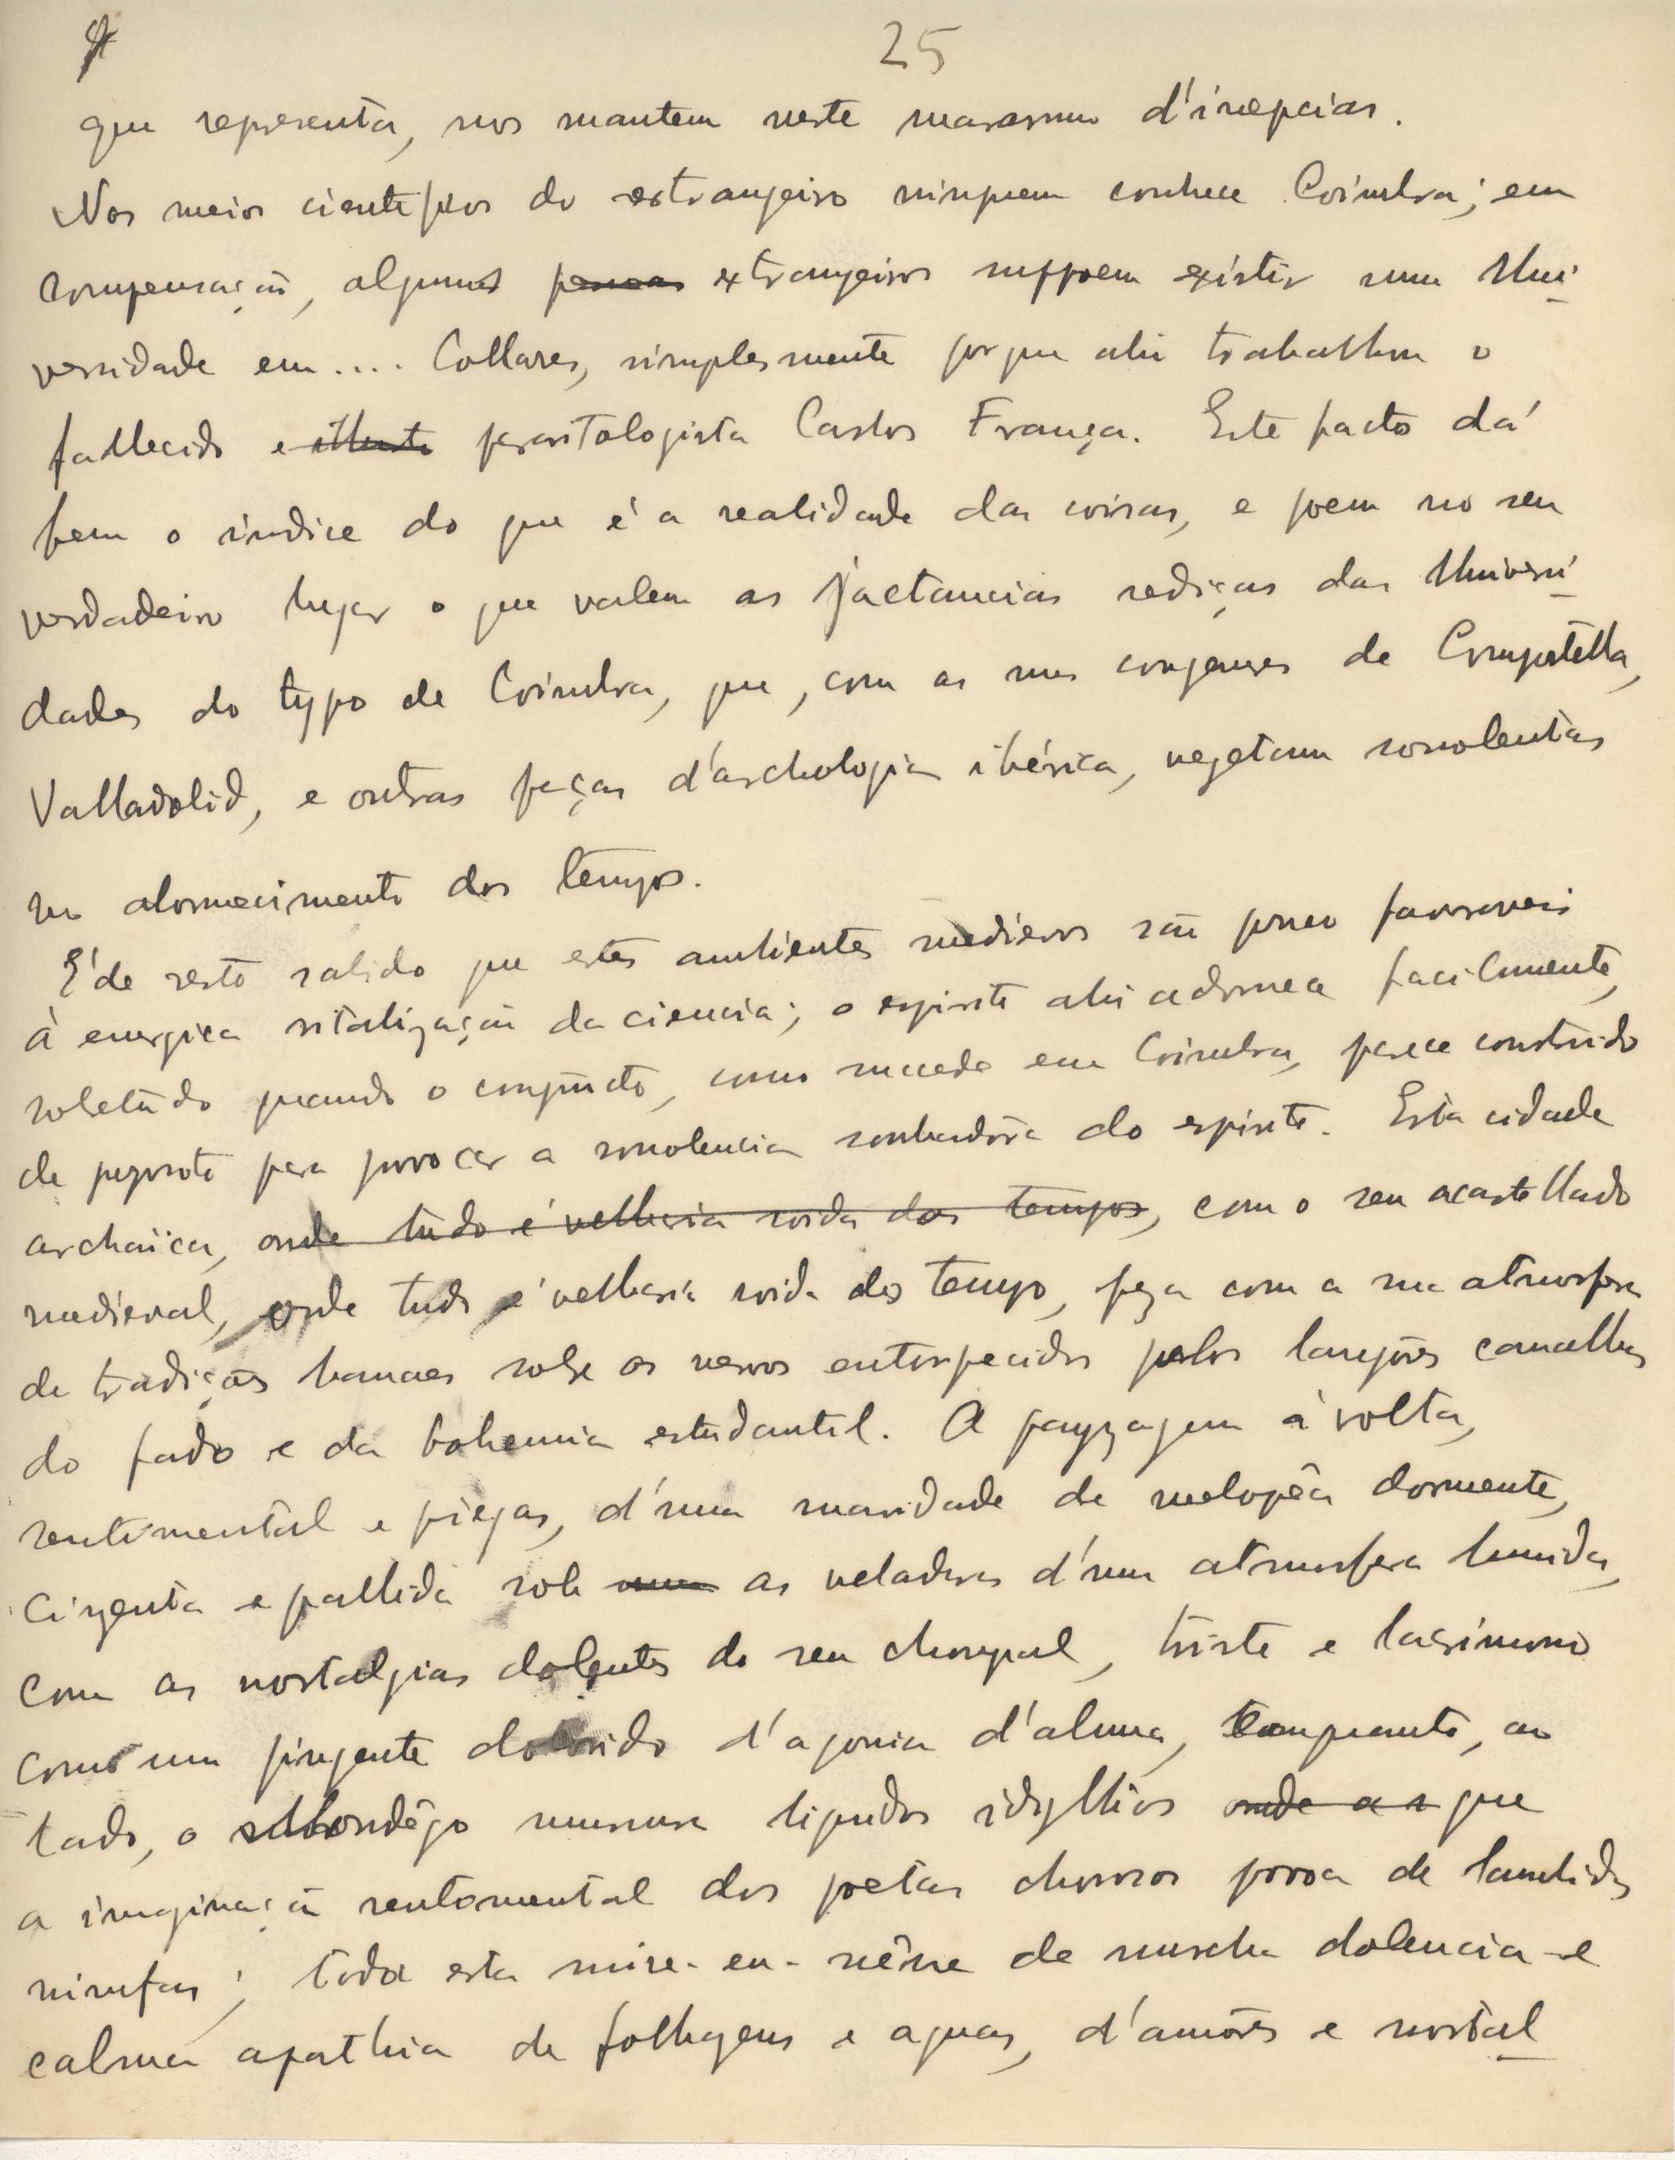 25
que representa, nos mantem neste marasmo d'inepcias.
Nos meios cientificos do estrangeiro ninguem conhece Coimbra; em
compensação, alguns pessoas extrangeiros suppoem existir uma Uni-
versidade em.... Collares, simplesmente porque ahi trabalhou o
fallecido e illustre parasitologista Carlos França. Este facto dá
bem o indice do que é a realidade das coisas, e poem no seu
verdadeiro lugar o que valem as jactancias rediças das Universi-
dades do typo de Coimbra, que, com as suas congeneres de Compostella,
Valladolid, e outras peças d'archologia ibérica, vegetam sonolentas
no adormecimento dos tempos.
É de resto sabido que estes ambientes medievos são pouco favoraveis
á energica vitalização da ciencia; o espirito ahi adormece facilmente,
sobetudo quando o conjuncto, como succede em Coimbra, parece construido
de proposito para provocar a sonolencia sonhadôra do espirito. Esta cidade
archaïca, onde tudo é velharia roida dos tempos, com o seu acastellado
medieval, onde tudo é velharia roida do tempo, peza com a sua atmosfera
de tradiçoes banaes sobre os nervos entorpecidos pelos langôres canalhas
do fado e da bohemia estudantil. A payzagem á volta,
sentimental e piegas, d'uma suavidade de melopêa dormente,
cinzenta e pallida sob uma as veladuras d'uma atmosfera humida,
com as nostalgias dolentes do seu choupal, triste e lacrimoso
como um pingente dolorido d'agonia d'alma, emquanto, ao
lado, o Mondêgo murmura liquidos idyllios onde as que
a imaginação sentimental dos poetas chorosos povoa de lambidas
ninfas; toda esta mise-en-scêne de murcha dolencia e
calma apathia de folhagens e aguas, d'amôres e nostal-